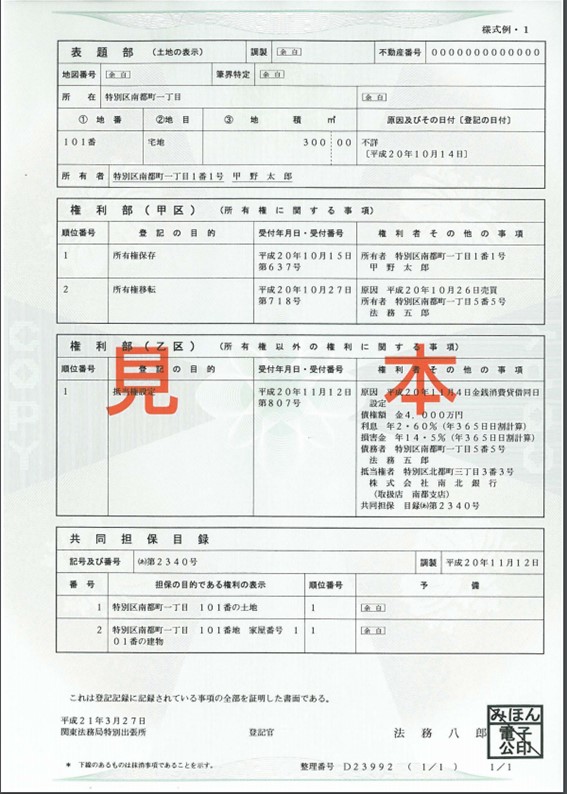 様式例・1
表題部 (土地の表示) 調製 余白 不動産番号 0000000000000
地図番号 余白 筆界特定 余白
所在 特別区南都町一丁目 余白
①地番 ②地目 ③地積㎡ 原因及びその日付〔登記の日付〕
101番 宅地 300 00 不詳
〔平成20年10月14日〕
所有者 特別区南都町一丁目1番1号 甲野太郎
権利部(甲区) (所有権に関する事項)
順位番号 登記の目的 受付年月日・受付番号 権利者その他の事項
1 所有権保存 平成20年10月15日 所有者 特別区南都町一丁目1番1号
第637号 甲野太郎
2 所有権移転 平成20年10月27日 原因 平成20年10月26日売買
第718号 所有者 特別区南都町一丁目5番5号
法務五郎
権利部(乙区) (所有権以外の権利に関する事項)
順位番号 登記の目的 受付年月日・受付番号 権利者その他の事項
見本
1 抵当権設定 平成20年11月12日 原因 平成20年11月4日金銭消費貸借同日
第807号 設定
債権額 金4,000万円
利息 年2・60%(年365日日割計算)
損害金 年14・5%(年365日日割計算)
債務者 特別区南都町一丁目5番5号
法務五郎
抵当権者 特別区北都町三丁目3番3号
株式会社南北銀行
(取扱店 南都支店)
共同担保 目録(あ)第2340号
共同担保目録
記号及び番号 (あ)第2340号 調製 平成20年11月12日
番号 担保の目的である権利の表示 順位番号 予備
1 特別区南都町一丁目 101番の土地 1 余白
2 特別区南都町一丁目 101番地 家屋番号 1 1 余白
01番の建物
これは登記記録に記録されている事項の全部を証明した書面である。
平成21年3月27日
関東法務局特別出張所 登記官 法務八郎
みほん
電子
公印
* 下線のあるものは抹消事項であることを示す。 整理番号 D23992 (1/1) 1/1